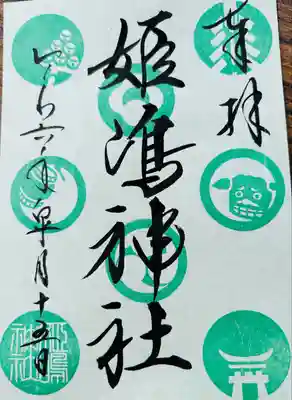 奉拝
姫嶋神社
令和六年皐月十五日
姫嶋神社